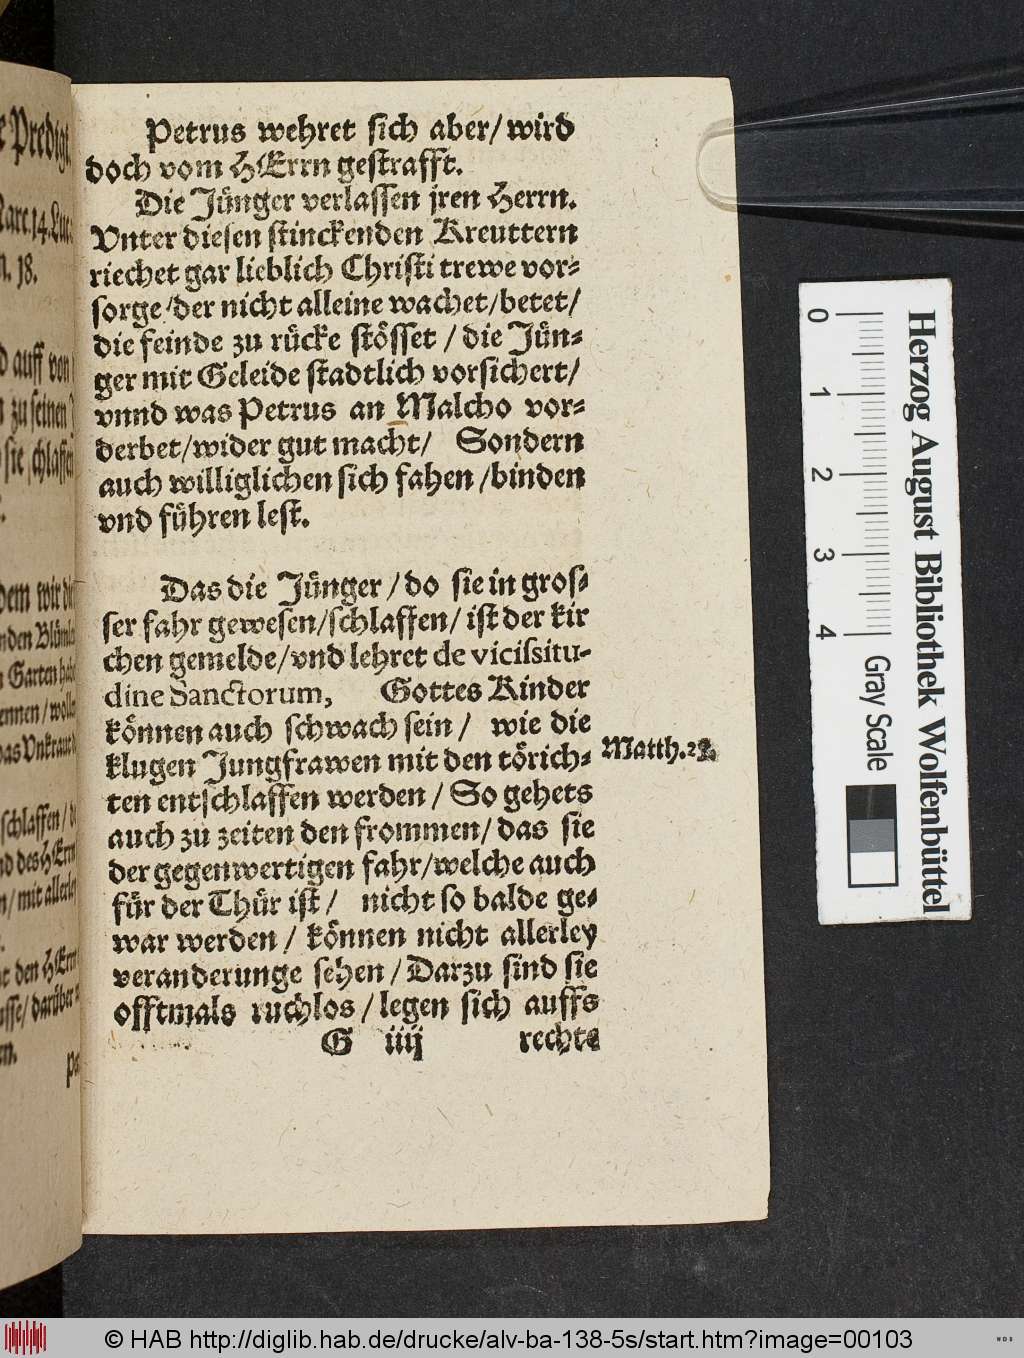 e Predigt.
Marc. 14. Luc.
18.
auff von
zu seinen
sie schlaffen
dem wir die
nden Blümlein
Garten habe
ennen / wolle
das Vnkraut
schlaffen /
nd des HErrn
/ mit allerley
den HErrn
/ darüber
Petrus wehret sich aber / wird
doch vom HErrn gestrafft.
Die Jünger verlassen jren Herrn.
Vnter diesen stinckenden Kreuttern
riechet gar lieblich Christi trewe vor-
sorge / der nicht alleine wachet / betet /
die feinde zu rücke stösset / die Jün-
ger mit Geleide stadtlich vorsichert /
vnnd was Petrus an Malcho vor-
derbet / wider gut macht / Sondern
auch williglichen sich fahen / binden
vnd führen lest.
Das die Jünger / do sie in gros-
ser fahr gewesen / schlaffen / ist der kir
chen gemelde / vnd lehret de vicissitu-
dine Sanctorum, Gottes Kinder
können auch schwach sein / wie die
klugen Jungfrawen mit den törich-
ten entschlaffen werden / So gehets
auch zu zeiten den frommen / das sie
der gegenwertigen fahr / welche auch
für der Thür ist / nicht so balde ge-
war werden / können nicht allerley
veranderunge sehen / Darzu sind sie
offtmals ruchlos / legen sich auffs
G iiij rechte
Matth.
0 1 2 3 4
Herzog August Bibliothek Wolfenbüttel
Gray Scale
© HAB http://diglib.hab.de/drucke/alv-ba-138-5s/start.htm?image=00103